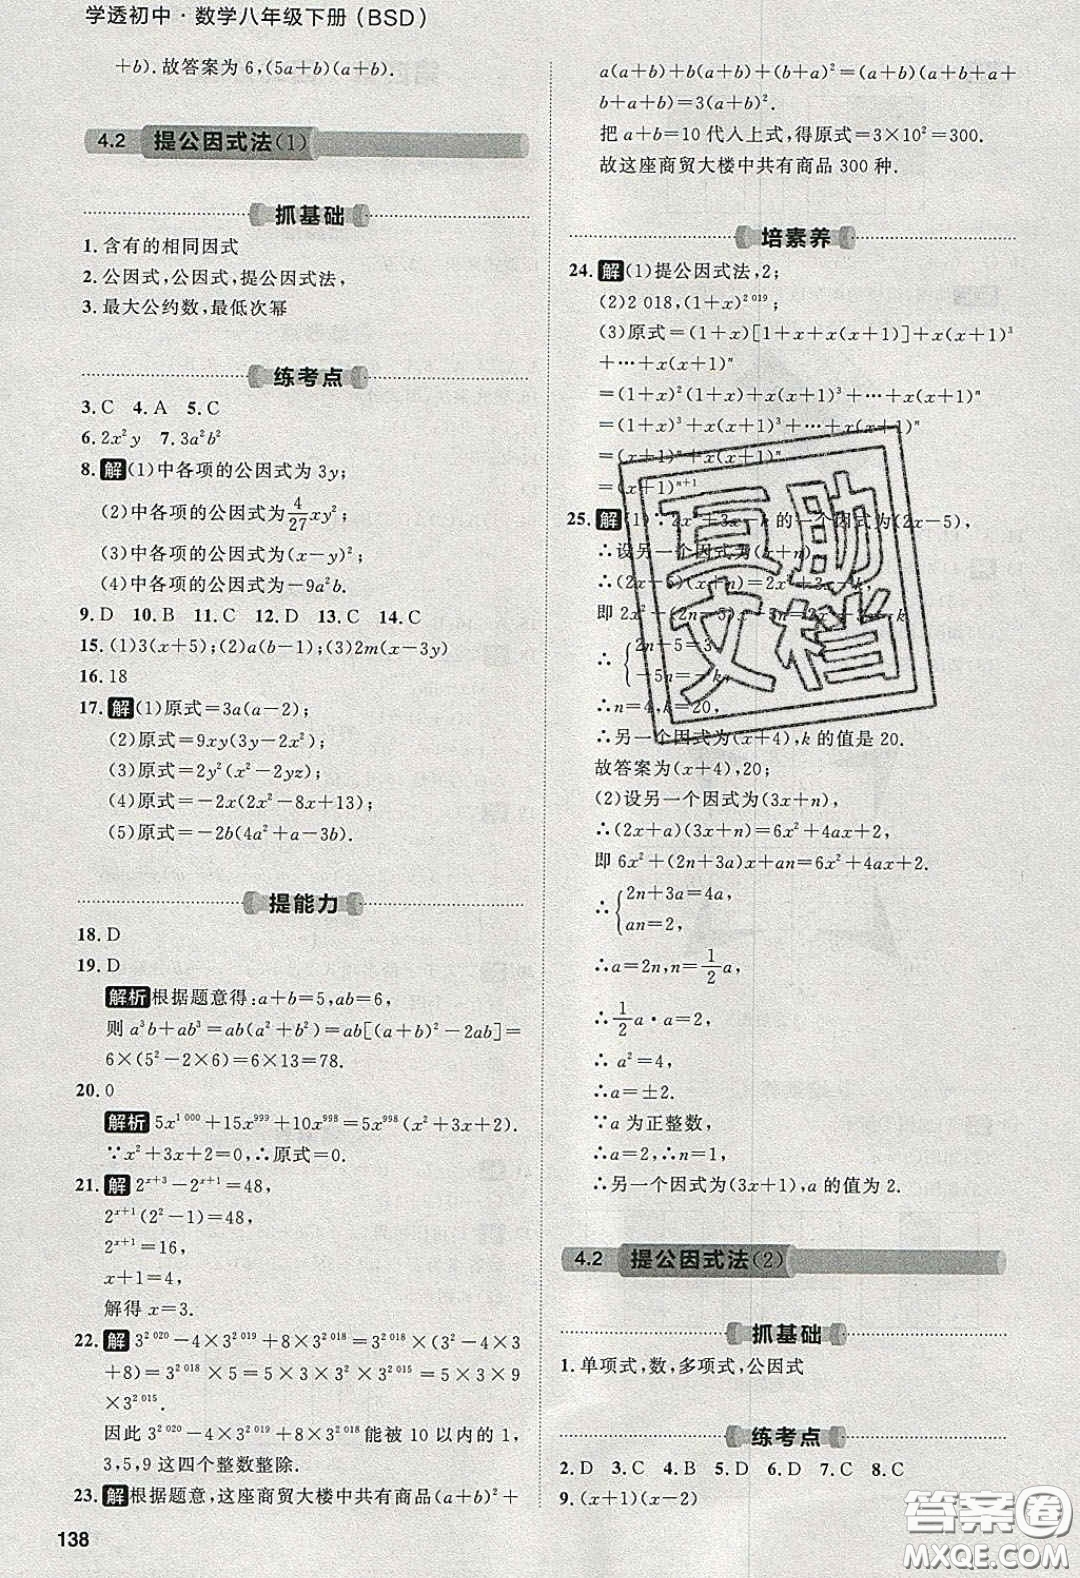 学透初中·数学八年级下册(BSD)
+b).故答案为 6,(5a+b)(a+b).
4.2 提公因式法(1)
抓基础
1. 含有的相同因式
2. 公因式,公因式,提公因式法,
3. 最大公约数,最低次幂
练考点
3. C 4. A 5. C
6. 2x²y 7. 3a²b²
8. 解 (1)中各项的公因式为 3y;
(2)中各项的公因式为 4/27 xy²;
(3)中各项的公因式为(x−y)²;
(4)中各项的公因式为−9a²b.
9. D 10. B 11. C 12. D 13. C 14. C
15. (1)3(x+5);(2)a(b−1);(3)2m(x−3y)
16. 18
17. 解 (1)原式=3a(a−2);
(2)原式=9xy(3y−2x²);
(3)原式=2y²(x²−2yz);
(4)原式=−2x(2x²−8x+13);
(5)原式=−2b(4a²+a−3b).
提能力
18. D
19. D
解析 根据题意得:a+b=5,ab=6,
则 a³b+ab³=ab(a²+b²)=ab[(a+b)²−2ab]=
6×(5²−2×6)=6×13=78.
20. 0
解析 5x^1 000+15x^999+10x^998=5x^998(x²+3x+2).
∵x²+3x+2=0,∴原式=0.
21. 解 2^(x+3)−2^(x+1)=48,
2^(x+1)(2²−1)=48,
2^(x+1)=16,
x+1=4,
解得 x=3.
22. 解 3^2 020−4×3^2 019+8×3^2 018=3^2 018×(3²−4×3
+8)=3^2 018×5=3^2 015×5×3³=5×3×9
×3^2 015.
因此 3^2 020−4×3^2 019+8×3^2 018能被 10 以内的
3,5,9 这四个整数整除.
23. 解 根据题意,这座商贸大楼中共有商品(a+b)²+
138
a(a+b)+b(a+b)+(b+a)²=(a+b)(a+b+a+
b+a+b)=3(a+b)².
把 a+b=10 代入上式,得原式=3×10²=300.
故这座商贸大楼中共有商品 300 种.
培素养
24. 解 (1)提公因式法,2;
(2)2 018,(1+x)^2 019;
(3)原式=(1+x)[1+x+x(x+1)]+x(x+1)³
+…+x(x+1)ⁿ
=(1+x)²(1+x)+x(x+1)³+…+x(x+1)ⁿ
=(1+x)³+x(x+1)³+…+x(x+1)ⁿ
=(x+1)ⁿ+x(x+1)ⁿ
=(x+1)ⁿ⁺¹
25. 解 (1)∵2x²+3x−k 的一个因式为(2x−5),
∴设另一个因式为(x+n),
∴(2x−5)(x+n)=2x²+3x−k,
即 2x²+(2n−5)x−5n=2x²+3x−k
∴{2n−5=3,
−5n=−k,
∴n=4,k=20,
∴另一个因式为(x+4),k 的值是 20.
故答案为(x+4),20;
(2)设另一个因式为(3x+n),
∴(2x+a)(3x+n)=6x²+4ax+2,
即 6x²+(2n+3a)x+an=6x²+4ax+2.
∴{2n+3a=4a,
an=2,
∴a=2n,n=1/2 a,
∴1/2 a·a=2,
∴a²=4,
∴a=±2.
∵a 为正整数,
∴a=2,n=1,
∴另一个因式为(3x+1),a 的值为 2.
4.2 提公因式法(2)
抓基础
1. 单项式,数,多项式,公因式
练考点
2. D 3. C 4. B 5. D 6. D 7. C 8. C
9. (x+1)(x−2)
互助
文档
答案圈
MXQE.COM